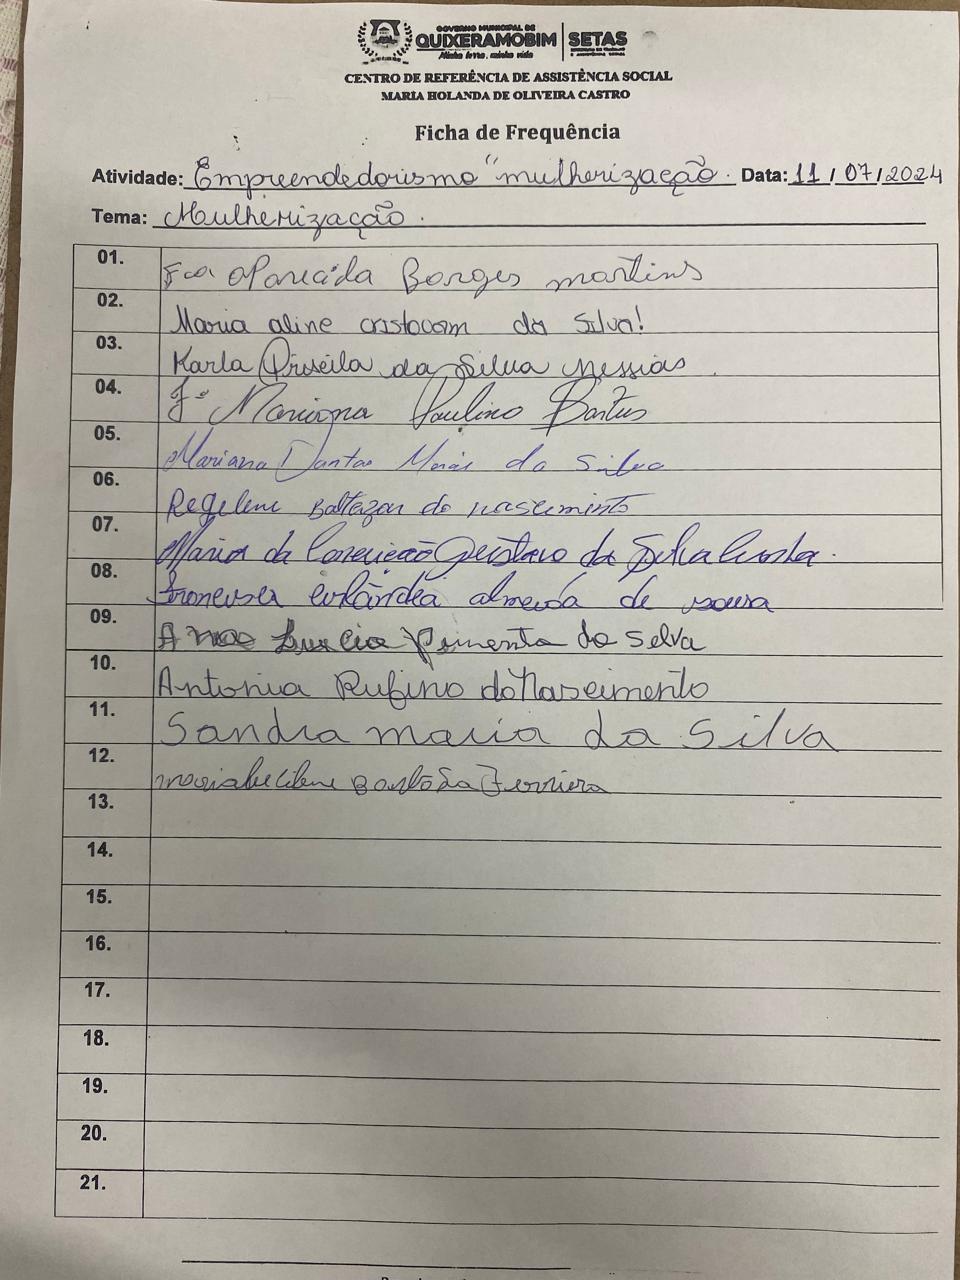 GOVERNO MUNICIPAL DE
QUIXERAMOBIM
Minha terra, minha vida
SETAS
CENTRO DE REFERÊNCIA DE ASSISTÊNCIA SOCIAL
MARIA HOLANDA DE OLIVEIRA CASTRO
Ficha de Frequência
Atividade: Empreendedorismo "mulherização. Data: 11/07/2024
Tema: Mulherização.
01. Fca Aparecida Borges martins
02. Maria aline cristovam da Silva!
03. Karla Priscila da Silva Messias
04. Fª Mariana Paulino Bastus
05. Mariana Dantas Morais da Silva
06. Regilene Baltazar do nascimento
07. Maria da Conceição Gustavo da Silva
08. evlândia almeida de sousa
09. Ana Lucia Pimenta da Silva
10. Antonia Rufino do Nascimento
11. Sandra maria da Silva
12. Ferriera
13.
14.
15.
16.
17.
18.
19.
20.
21.